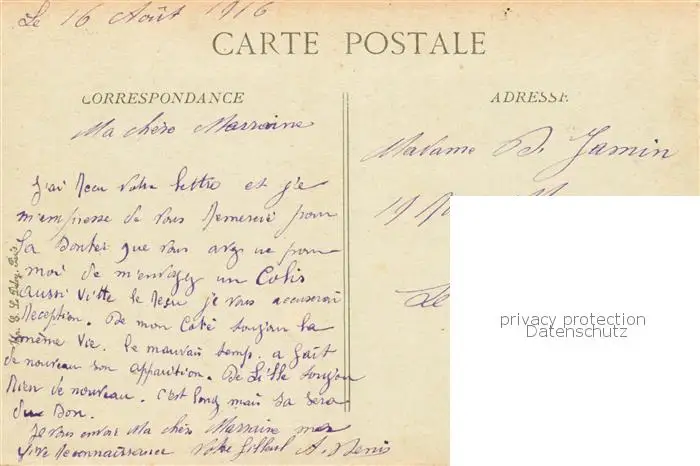 Le 16 Août 1916
CARTE POSTALE
CORRESPONDANCE
ADRESSE
Ma chère Marraine
Madame D. Jamin
J'ai Reçu Votre lettre et j'e
m'empresse de vous Remercié pour
La Bontée que vous avez ue pour
moi de m'envoyez un Colis
aussi Vitte le Reçu je vous accuserai
Réception. De mon Coté toujour la
même Vie. le mauvais temps a fait
de nouveau son apparition. De Lille toujour
Rien de nouveau. C'est long mais sa sera
du Bon.
Je vous envoie Ma chère Marraine mes
Vive Reconnaissance Votre filleul A. Denis
19
Le
privacy protection
Datenschutz